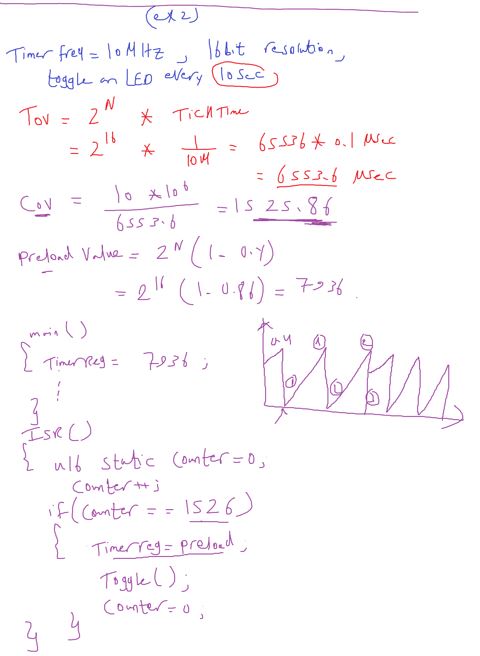 (ex2)
Timer freq = 10MHz , 16bit resolution,
toggle an LED every 10sec
TOV = 2^N * TickTime
= 2^16 * 1/10M = 65536 * 0.1 Msec
= 6553.6 Msec
COV = 10 * 10^6 / 6553.6 = 1525.86
Preload Value = 2^N (1 - 0.y)
= 2^16 (1 - 0.86) = 7936.
main()
{ TimerReg = 7936 ;
}
ISR()
{ u16 static counter=0;
counter++;
if(counter == 1526)
{ Timerreg=preload;
Toggle();
counter=0;
} }